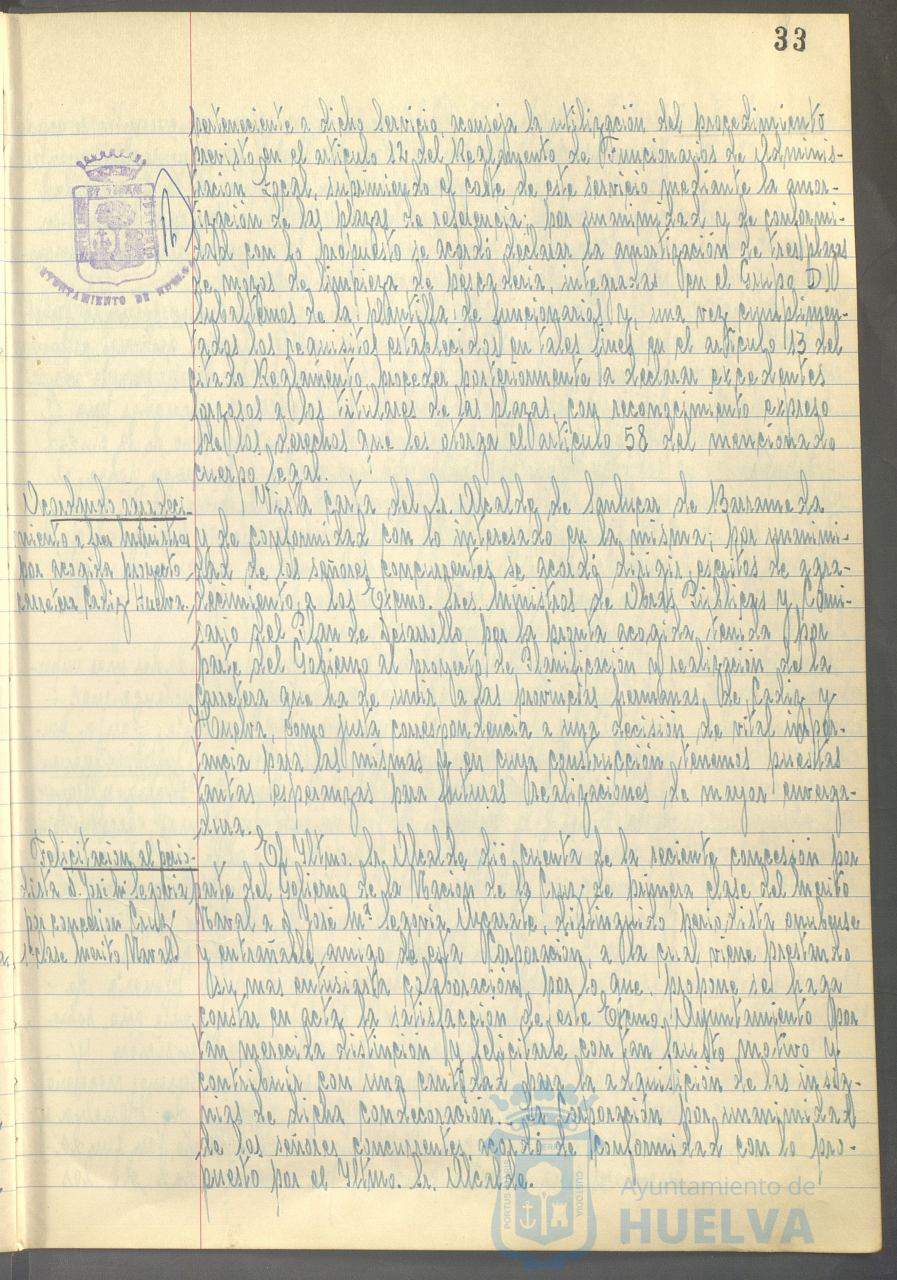 33
perteneciente a dicho Servicio, aconseja la utilización del procedimiento
previsto en el artículo 12 del Reglamento de Funcionarios de Adminis-
tración Local, suprimiendo el coste de este servicio mediante la amor-
tización de las plazas de referencia; por unanimidad y de conformi-
dad con lo propuesto se acordó declarar la amortización de tres plazas
de mozos de limpieza de pescadería, integradas en el Grupo D)
Subalternos de la plantilla de funcionarios y, una vez cumplimen-
tados los requisitos establecidos en tales fines en el artículo 13 del
citado Reglamento, proceder posteriormente a declarar excedentes
forzosos a los titulares de las plazas, con reconocimiento expreso
de los derechos que les otorga el artículo 58 del mencionado
cuerpo legal.
AYUNTAMIENTO DE HUELVA
Acordando agradeci-
miento a Sres Ministros
por acogida proyecto
carretera Cadiz Huelva.
Vista carta del Sr. Alcalde de Sanlucar de Barrameda
y de conformidad con lo interesado en la misma; por unanimi-
dad de los señores concurrentes se acordó dirigir escritos de agra-
decimiento a los Excmo. Sres. Ministros de Obras Públicas y Comi-
sario del Plan de Desarrollo, por la pronta acogida tenida por
parte del Gobierno al proyecto de Planificación y realización de la
carretera que ha de unir a las provincias hermanas de Cadiz y
Huelva, como justa correspondencia a una decisión de vital impor-
tancia para las mismas y en cuya construcción tenemos puestas
tantas esperanzas para futuras realizaciones de mayor enverga-
dura.
Felicitacion al perio-
dista d. José Mª Segovia
por concesion Cruz
1ª clase Merito Naval.
El Iltmo. Sr. Alcalde dió cuenta de la reciente concesion por
parte del Gobierno de la Nación de la Cruz de primera clase del Merito
Naval a d. José Mª Segovia Azcarate, distinguido periodista onubense
y entrañable amigo de esta Corporacion, a la cual viene prestando
su mas entusiasta colaboración, por lo que propone se haga
constar en acta la satisfacción de este Excmo. Ayuntamiento por
tan merecida distincion y felicitarle con tan fausto motivo y
contribuir con una cantidad para la adquisición de las insig-
nias de dicha condecoración. La Corporación por unanimidad
de los señores concurrentes, acordó de conformidad con lo pro-
puesto por el Iltmo. Sr. Alcalde.
PORTUS
CUSTODIA
Ayuntamiento de
HUELVA